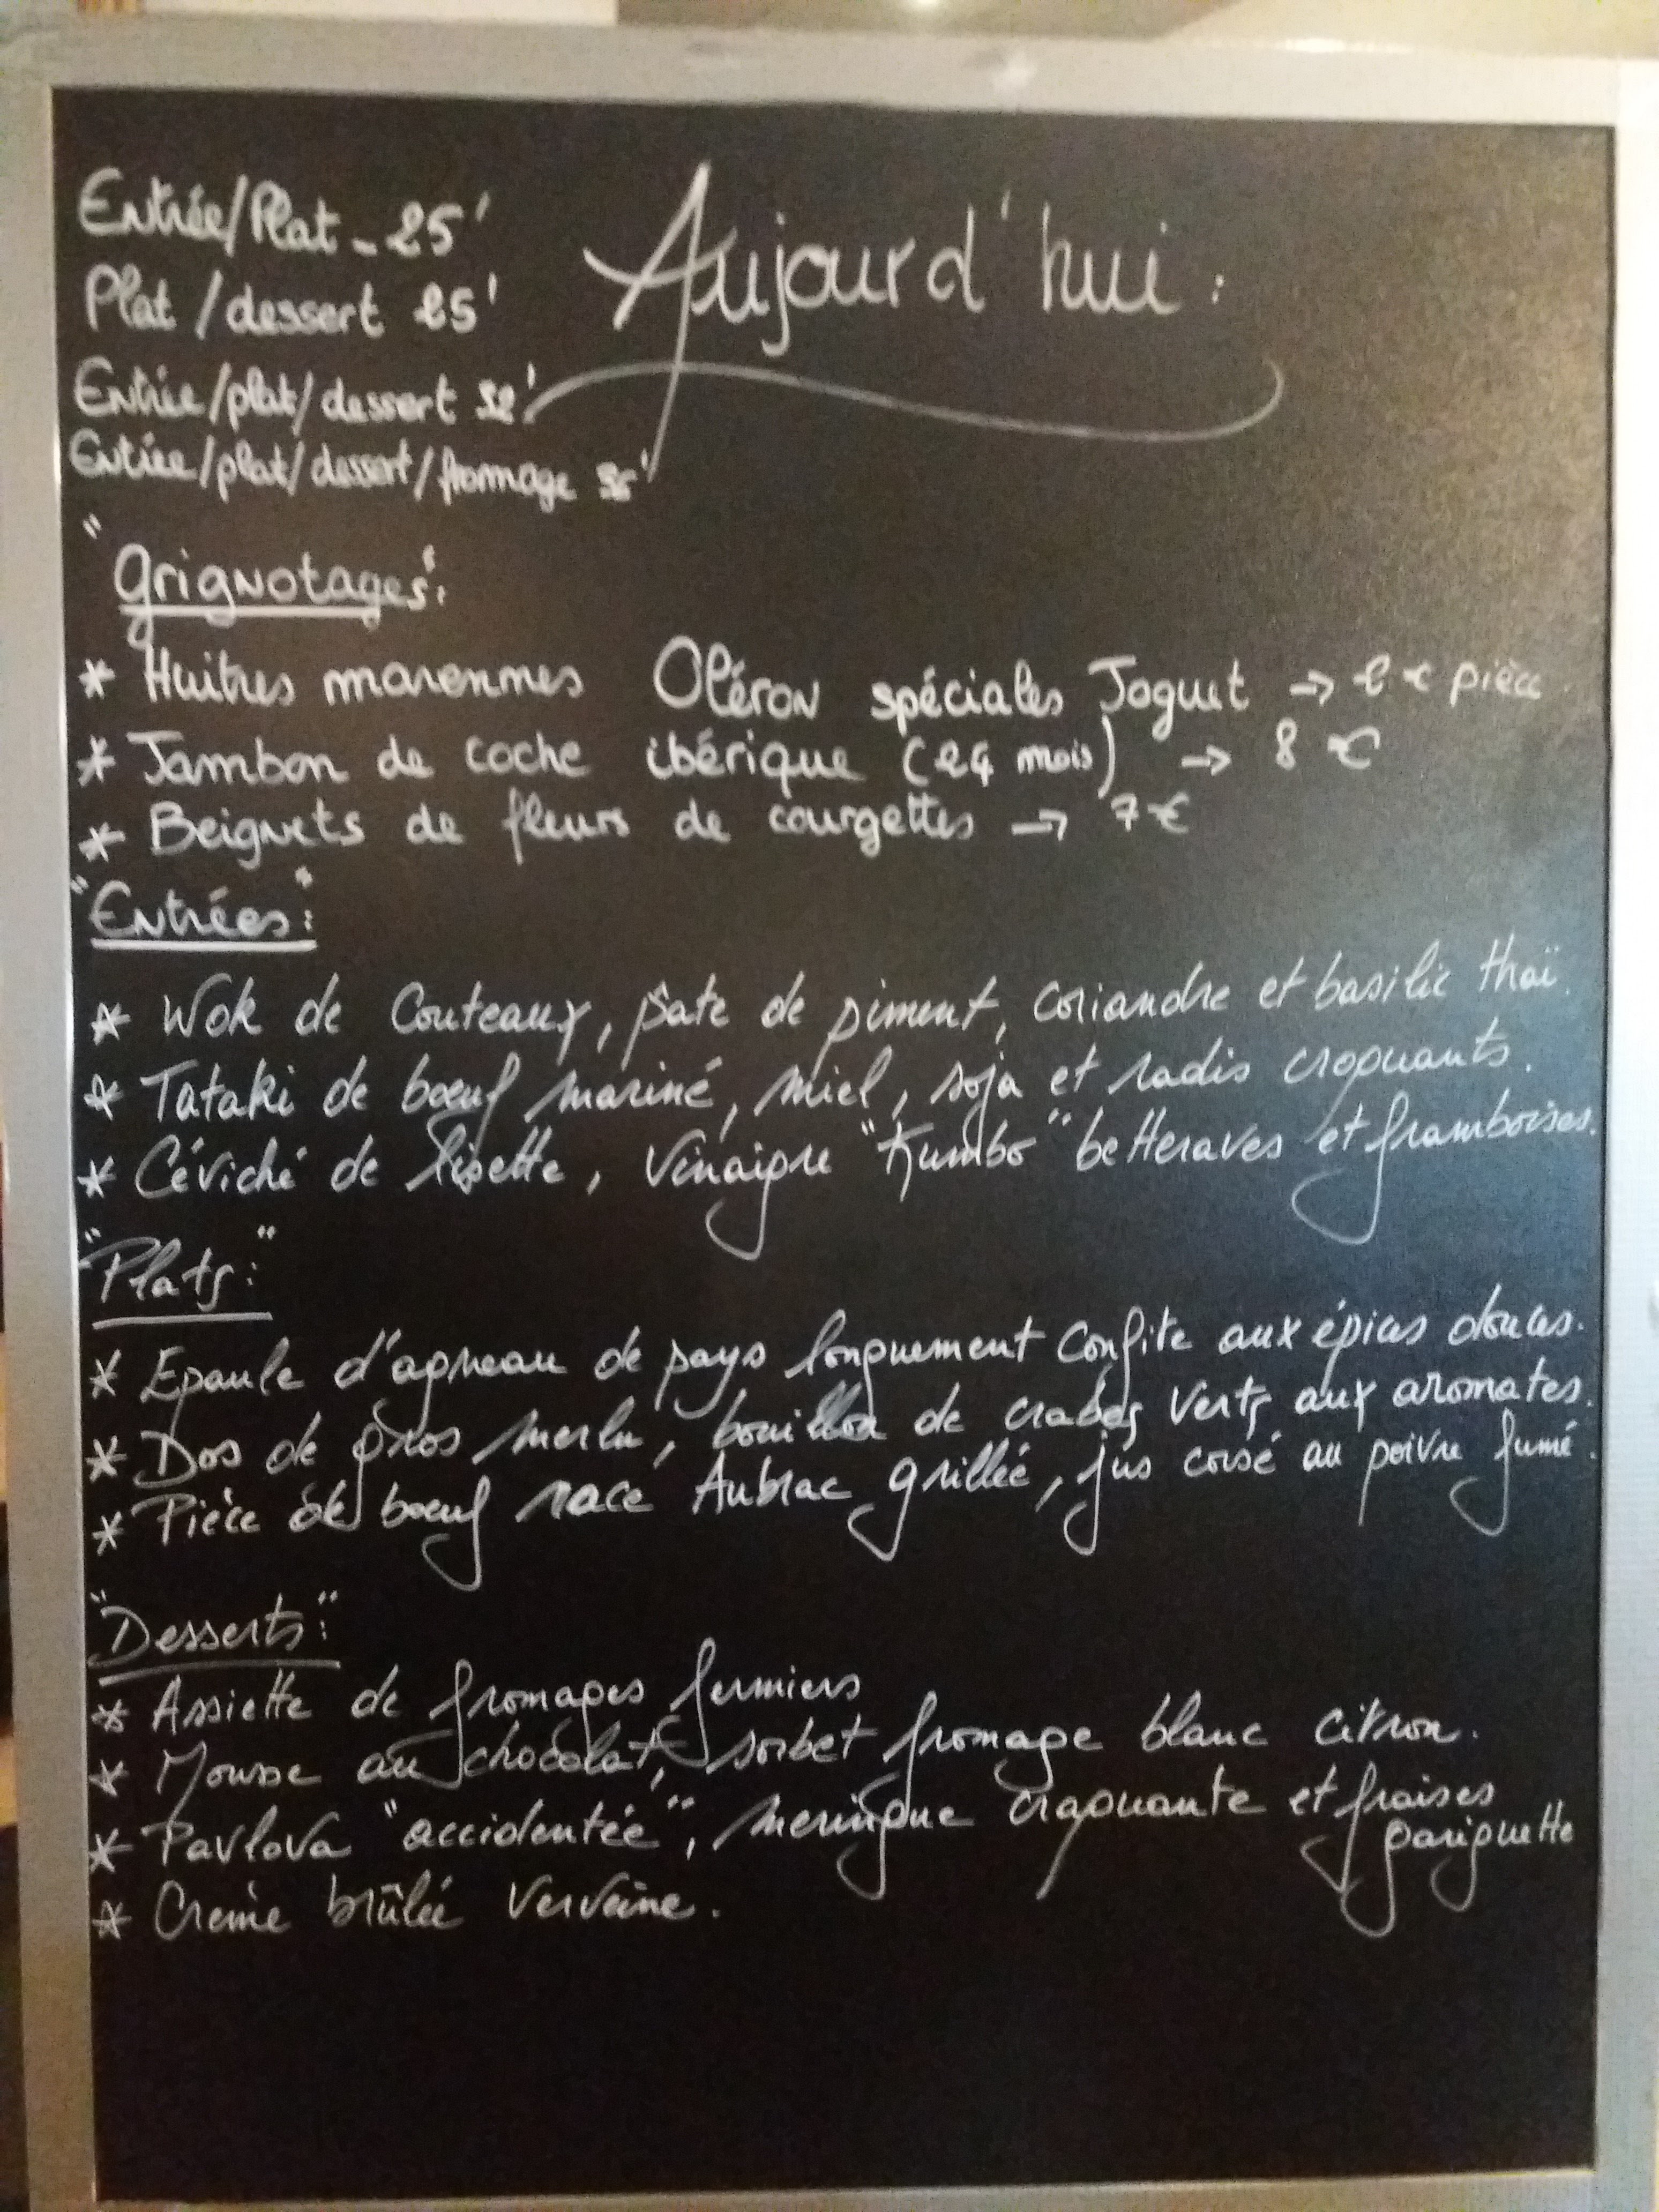 Entrée/Plat - 25'
Plat /dessert 25'
Aujourd'hui :
Entrée/plat/dessert 32'
Entrée/plat/dessert/fromage
"Grignotages":
* Huitres marennes Oléron spéciales Joguet → 2 € pièce.
* Jambon de coche ibérique (24 mois) → 8 €
* Beignets de fleurs de courgettes → 7 €
"Entrées":
* Wok de Couteaux, pate de piment, coriandre et basilic thaï.
* Tataki de bœuf mariné, miel, soja et radis croquants.
* Céviché de lisette, Vinaigre "Kumbo" betteraves et framboises.
"Plats:"
* Epaule d'agneau de pays longuement Confite aux épices douces.
* Dos de gros merlu, bouillon de crabes verts aux aromates.
* Pièce de bœuf race Aubrac grillée, jus corsé au poivre fumé.
"Desserts:"
* Assiette de fromages fermiers
* Mousse au chocolat, sorbet fromage blanc citron.
* Pavlova "accidentée", meringue craquante et fraises
gariguette
* Crème brûlée Verveine.